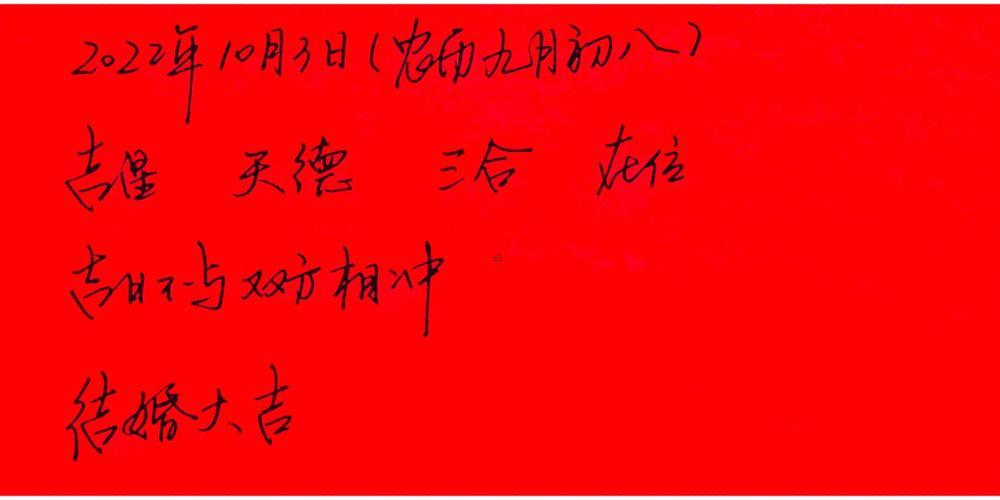 2022年10月3日(农历九月初八)
吉星 天德 三合 在位
吉日不与双方相冲
结婚大吉